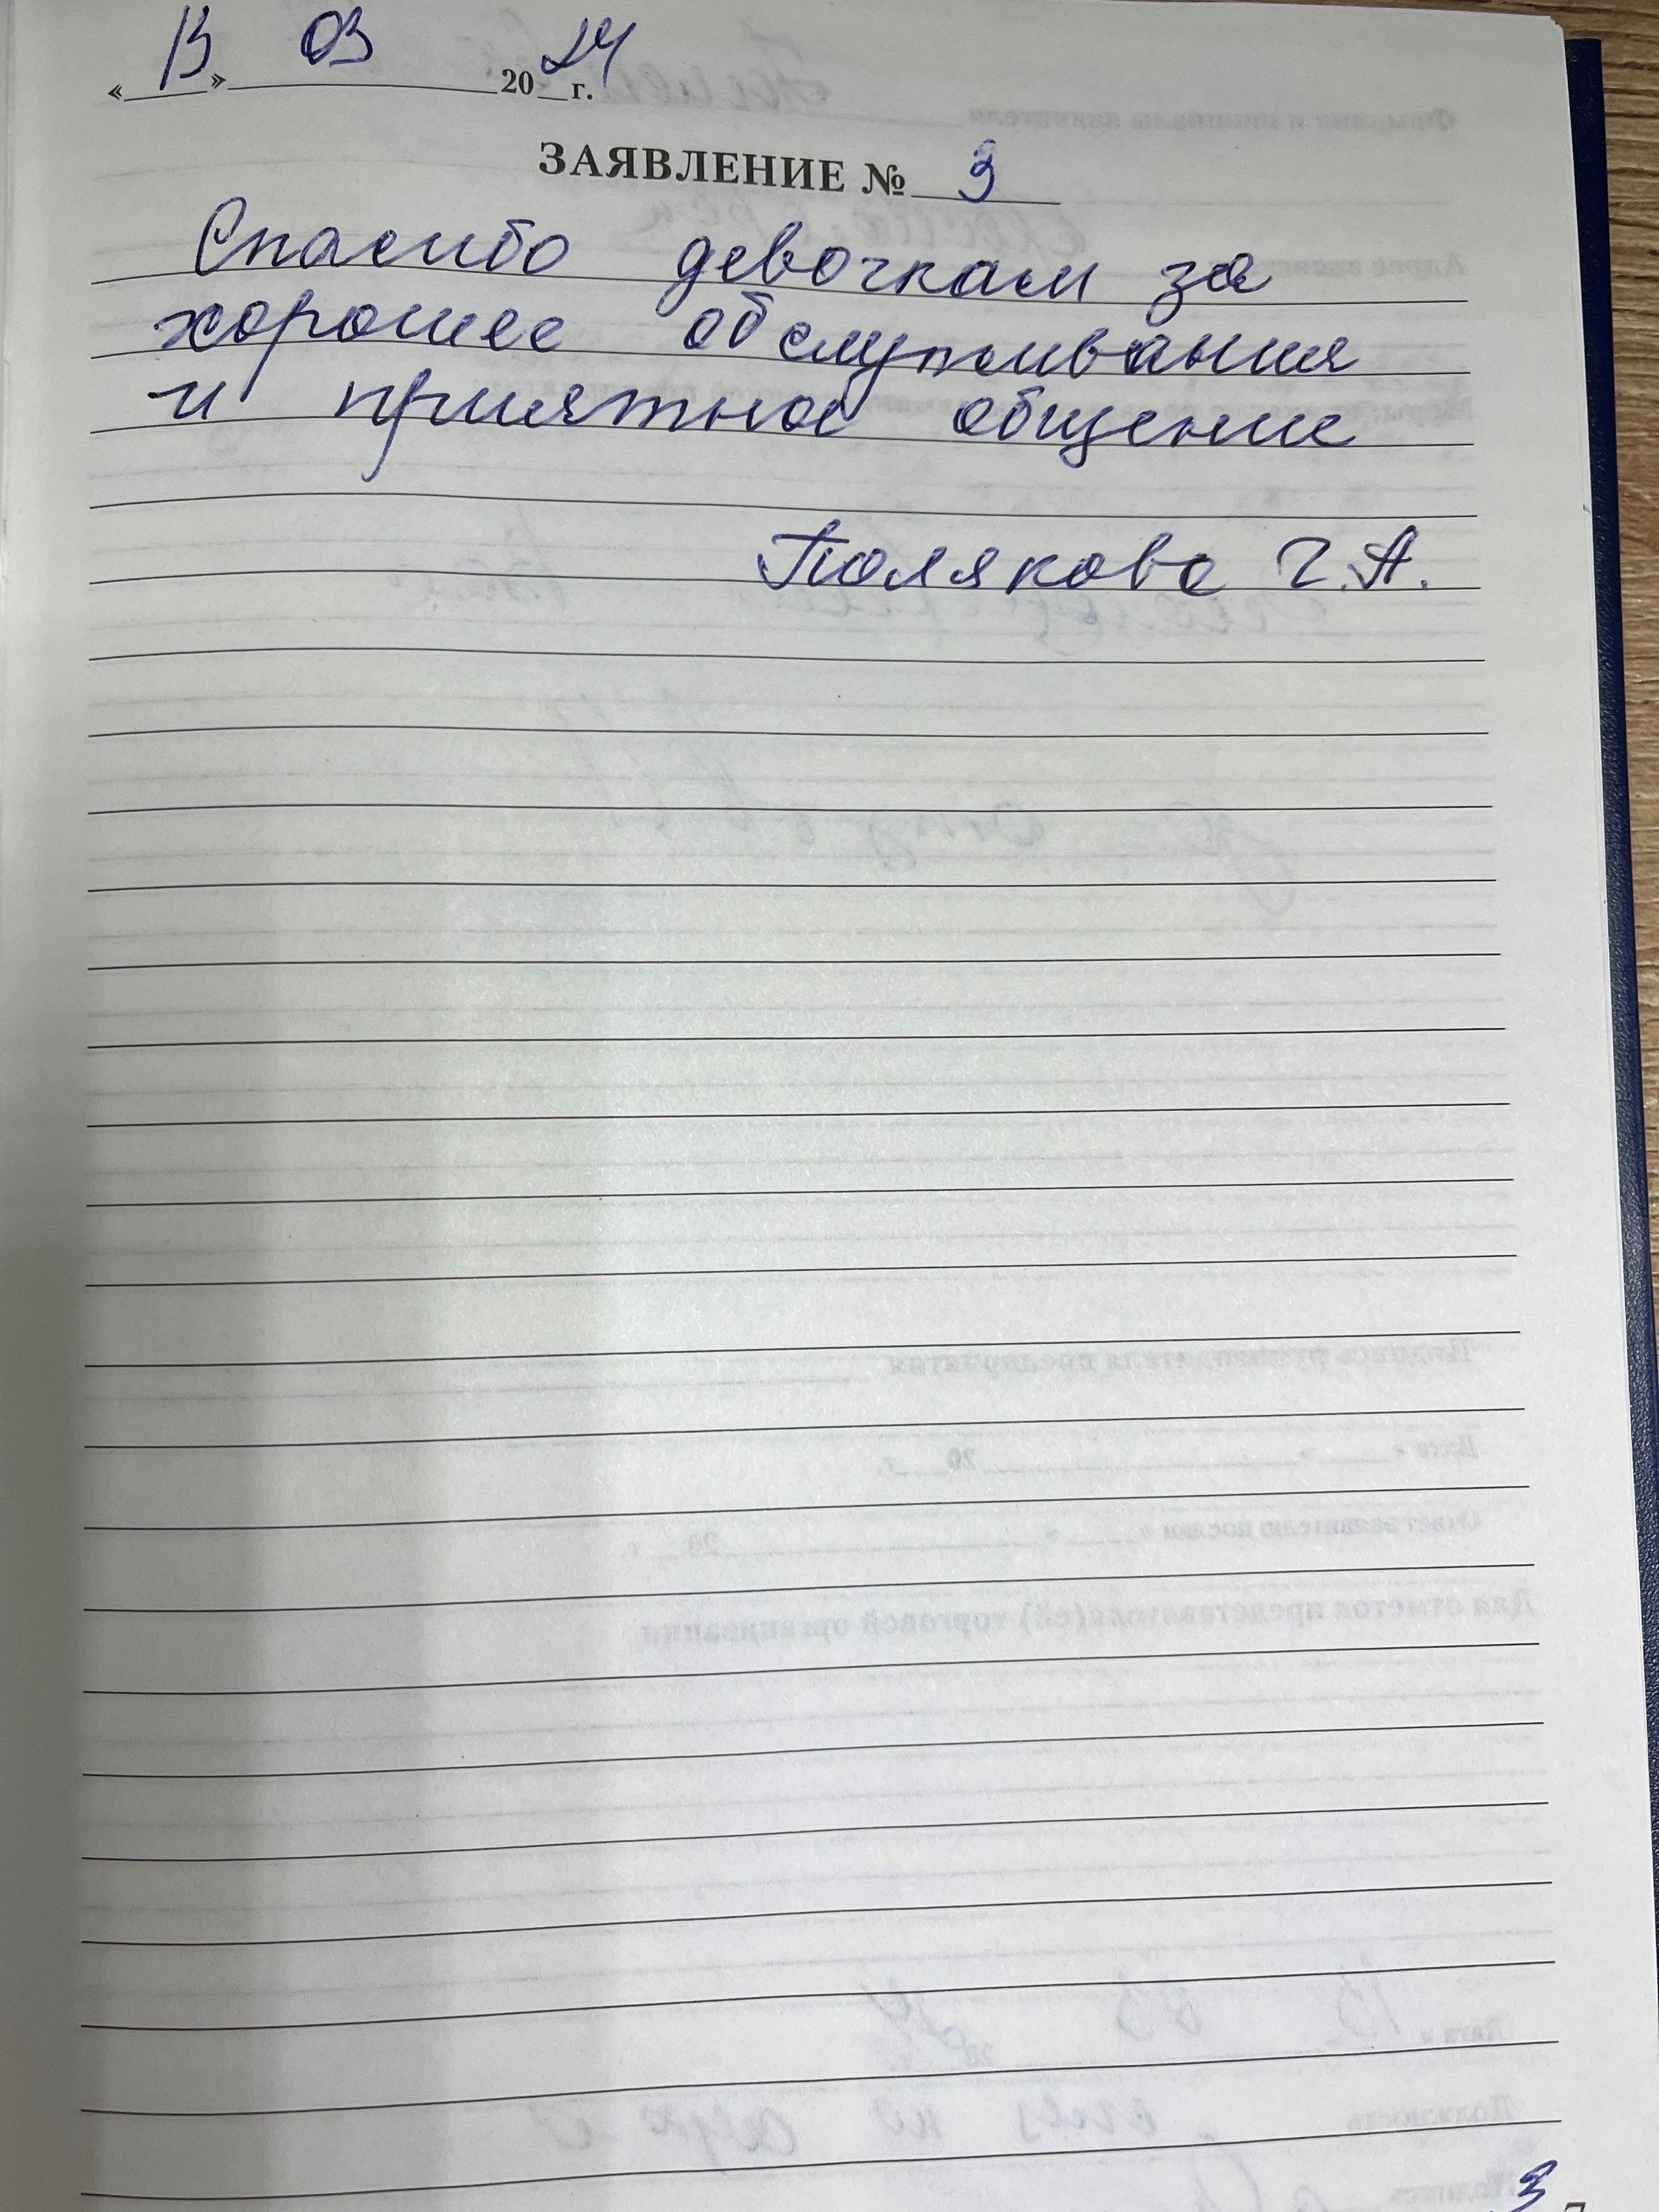 «13» 03 2024 г.
ЗАЯВЛЕНИЕ № 3
Спасибо девочкам за
хорошее обслуживания
и приятное общение
Полякова Г.А.
3